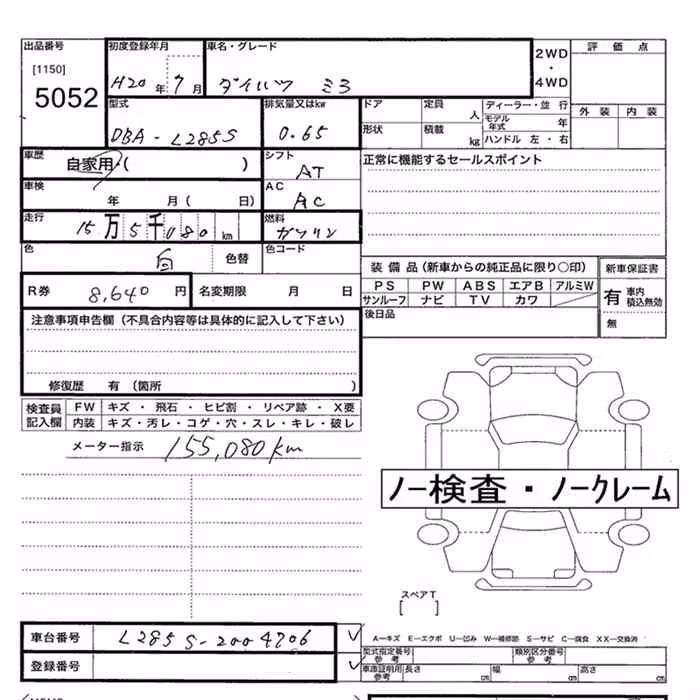 出品番号 初度登録年月 車名・グレード 2WD ・ 4WD 評価点
[1150] H20年 7月 ダイハツ ミラ
5052 型式 排気量又はkw ドア 定員 人 ディーラー・並 行 外装 内装
DBA-L285S 0.65 形状 積載 kg モデル年式 年 ハンドル 左・右
車歴 自家用・( ) シフト AT 正常に機能するセールスポイント
車検 年 月( 日) AC AC
走行 15万5千080km 燃料 ガソリン
色 白 色替 色コード 装備品(新車からの純正品に限り○印) 新車保証書
R券 8,640円 名変期限 月 日 PS PW ABS エアB アルミW 有 車内積込無効
サンルーフ ナビ TV カワ
注意事項申告欄(不具合内容等は具体的に記入して下さい) 後日品 無
修復歴 有(箇所 )
検査員記入欄 FW キズ・飛石・ヒビ割・リペア跡・X要
内装 キズ・汚レ・コゲ・穴・スレ・キレ・破レ
メーター指示 155,080km
ノー検査・ノークレーム
スペアT
[ ]
車台番号 L285S-2004706 ✓ A―キズ E―エクボ U―凹み W―補修跡 S―サビ C―腐食 XX―交換済
登録番号 ✓ 型式指定番号 参考 類別区分番号 参考
車庫証明用参考 長さ cm 幅 cm 高さ cm